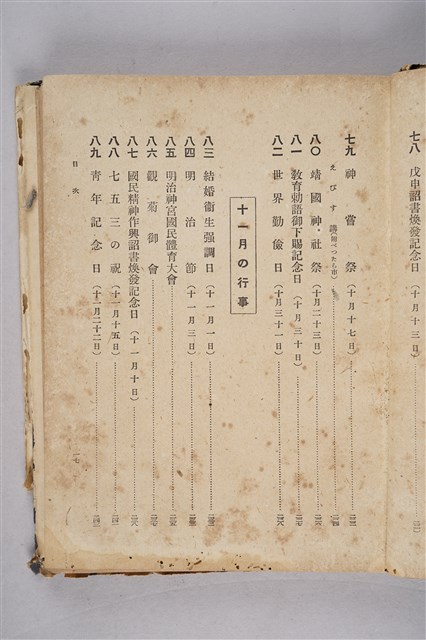 七八 戊申詔書煥發記念日(十月十三日)
七九 神嘗祭(十月十七日)
えびす講(附べつたら市)
八〇 靖國神社祭(十月二十三日)
八一 教育勅語御下賜記念日(十月三十日)
八二 世界勤儉日(十月三十一日)
十一月の行事
八三 結婚衞生强調日(十一月一日)
八四 明治節(十一月三日)
八五 明治神宮國民體育大會
八六 觀菊御會
八七 國民精神作興詔書煥發記念日(十一月十日)
八八 七五三の祝(十一月十五日)
八九 靑年記念日(十一月二十二日)
目次
一七